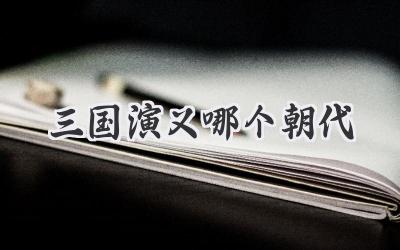 三国演义哪个朝代